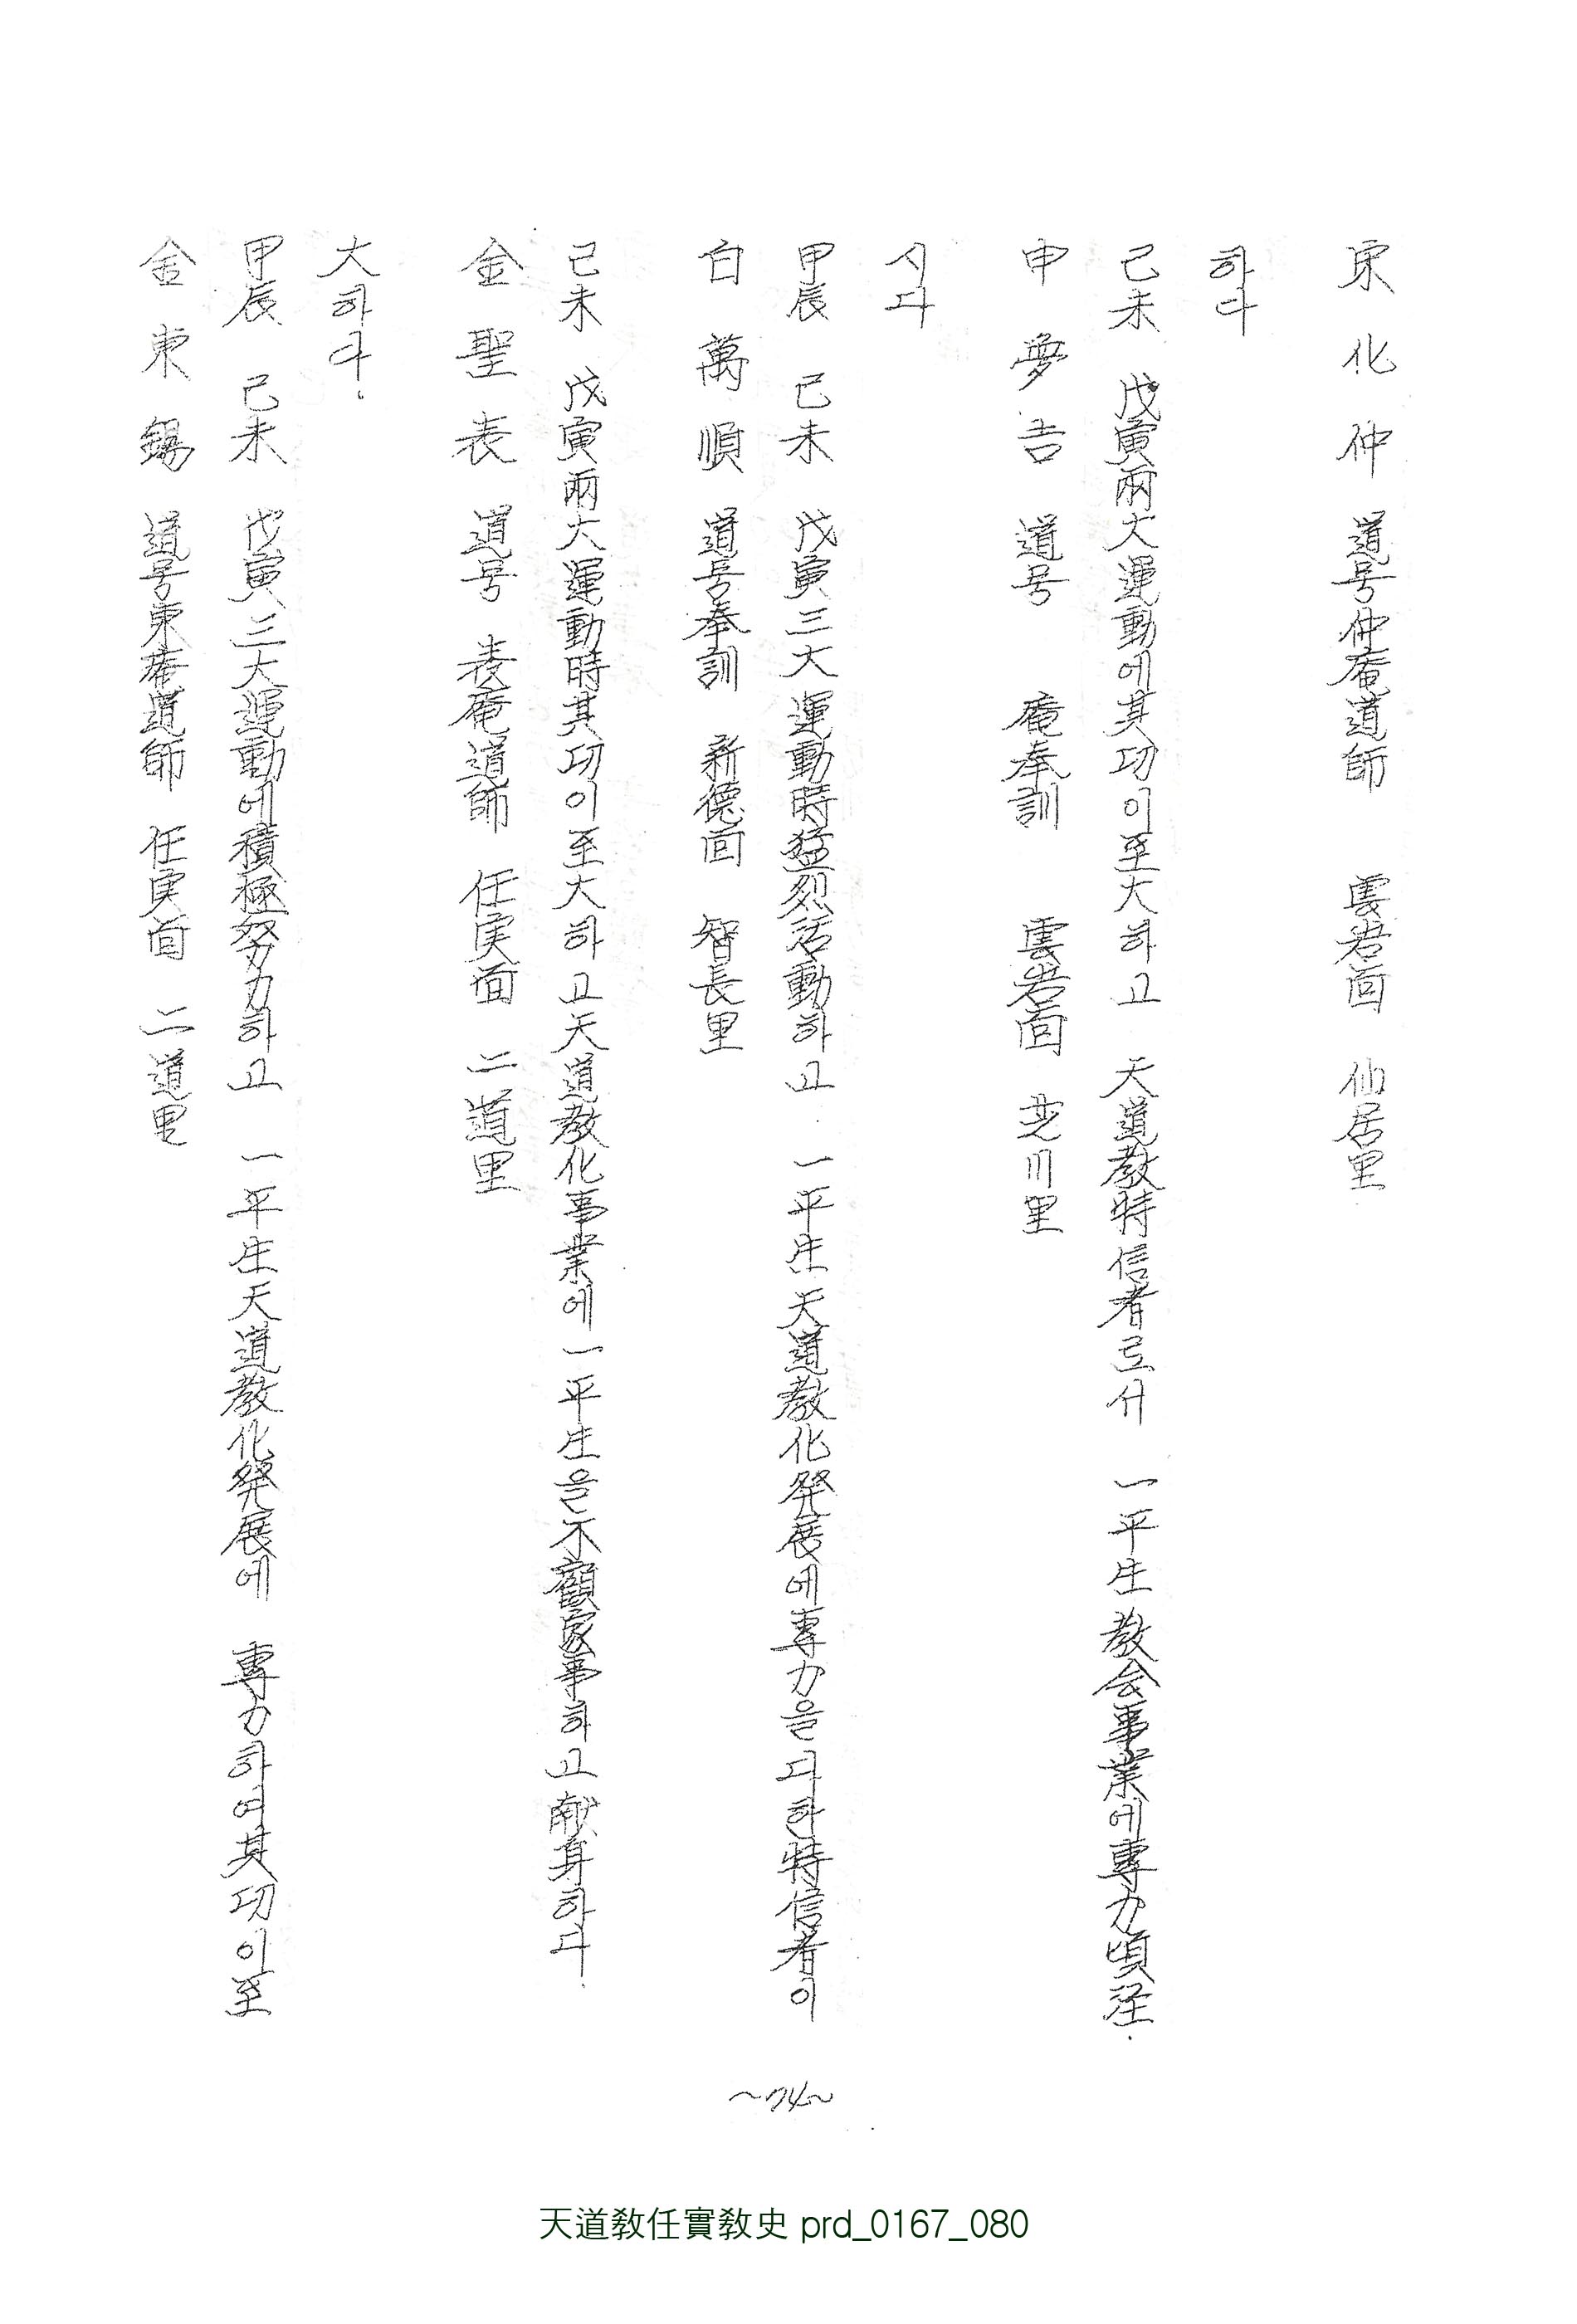 宋 化 仲 道号仲庵道師 雲岩面 仙居里
하다
己未 戊寅兩大運動에其功이至大하고 天道敎特信者로서 一平生敎会事業에專力傾注.
申 夢吉 道号 庵奉訓 雲岩面 芝川里
시다
甲辰 己未 戊寅三大運動時猛烈活動하고 一平生天道敎化発展에專力을다한特信者이
白 萬 順 道号奉訓 新德面 智長里
己未 戊寅兩大運動時其功이至大하고天道敎化事業에一平生을不顧家事하고献身하다.
金 聖 表 道号 表庵道師 任実面 二道里
大하다.
甲辰 己未 戊寅三大運動에積極努力하고 一平生天道敎化発展에 專力하여其功이至
金 東 錫 道号東菴道師 任実面 二道里
~74~
天道敎任實敎史 prd_0167_080